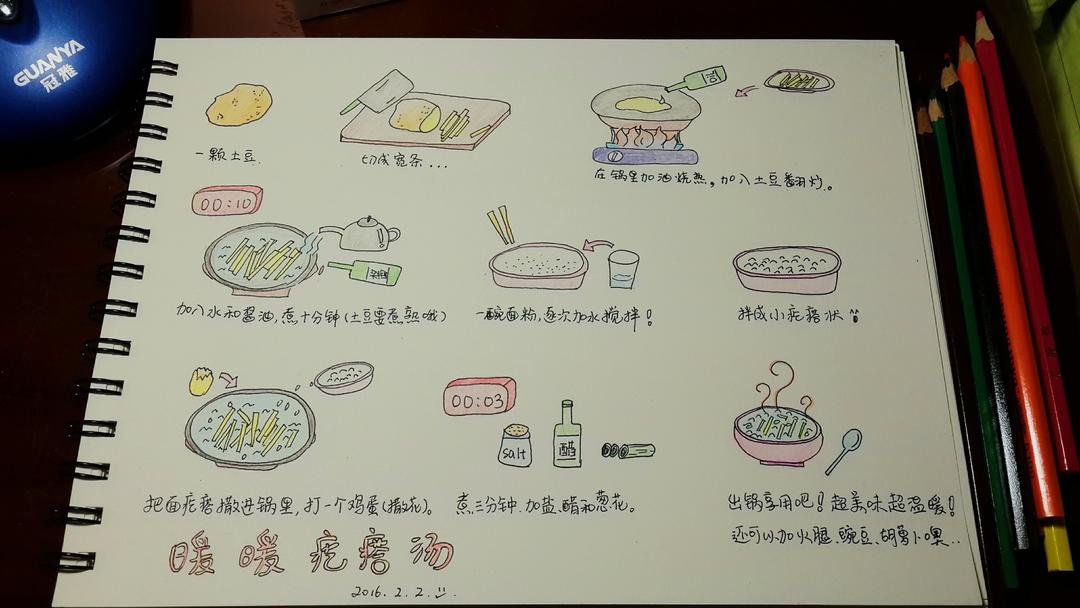 GUANYA
冠雅
一颗土豆.
切成宽条...
油
在锅里加油烧热。加入土豆翻炒。
00:10
加入水和酱油,煮十分钟(土豆要煮熟哦)
一碗面粉,逐次加水搅拌!
拌成小疙瘩状
把面疙瘩撒进锅里,打一个鸡蛋(撒花)。
00:03
salt
醋
煮三分钟.加盐、醋和葱花。
出锅享用吧!超美味超温暖!
还可以加火腿、豌豆、胡萝卜嘿..
暖暖疙瘩汤
2016.2.2.